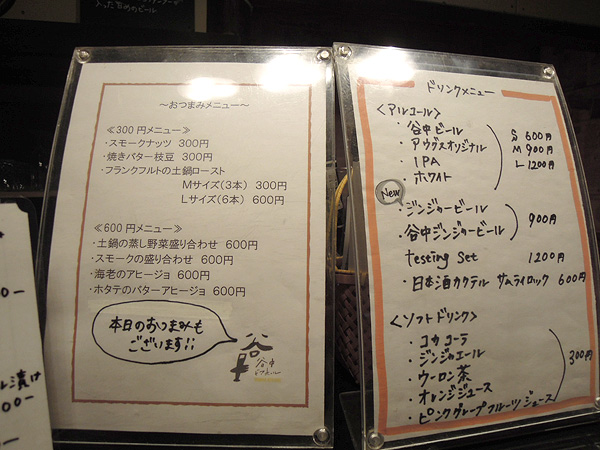 入った百めのビール
～おつまみメニュー～
≪300円メニュー≫
・スモークナッツ 300円
・焼きバター枝豆 300円
・フランクフルトの土鍋ロースト
Mサイズ(3本) 300円
Lサイズ(6本) 600円
≪600円メニュー≫
・土鍋の蒸し野菜盛り合わせ 600円
・スモークの盛り合わせ 600円
・海老のアヒージョ 600円
・ホタテのバターアヒージョ 600円
本日のおつまみも
ございます!!
谷中
ドリンクメニュー
<アルコール>
・谷中ビール
・アウグスオリジナル
・IPA
・ホワイト
S 600円
M 900円
L 1200円
New
・ジンジャービール
・谷中ジンジャービール
900円
testing Set 1200円
・日本酒カクテル サムライロック 600円
<ソフトドリンク>
・コカコーラ
・ジンジャエール
・ウーロン茶
・オレンジジュース
・ピンクグレープフルーツジュース
300円
ル漬け